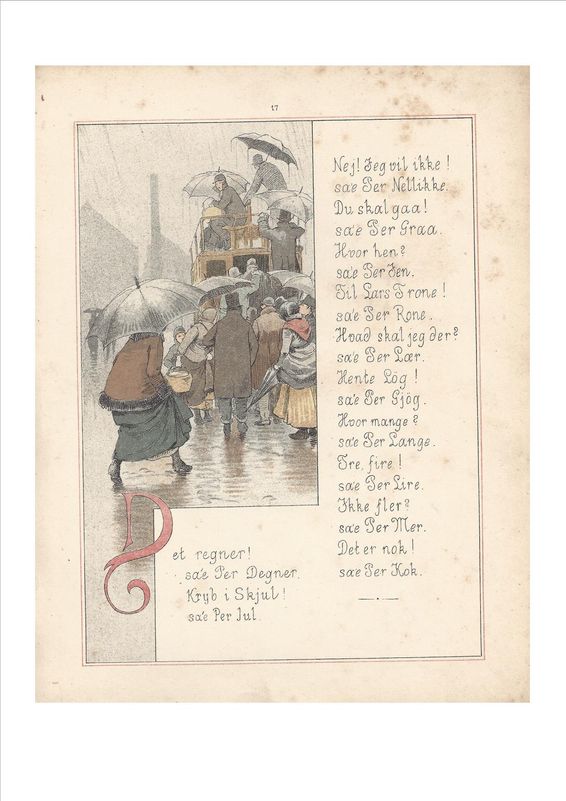 17
Det regner!
sa'e Per Degner.
Kryb i Skjul!
sa'e Per Jul.
Nej! Jeg vil ikke!
sa'e Per Nellikke.
Du skal gaa!
sa'e Per Graa.
Hvor hen?
sa'e Per Jen.
Til Lars Trone!
sa'e Per Rone.
Hvad skal jeg der?
sa'e Per Lær.
Hente Løg!
sa'e Per Gjög.
Hvor mange?
sa'e Per Lange.
Tre, fire!
sa'e Per Lire.
Ikke fler?
sa'e Per Mer.
Det er nok!
sa'e Per Kok.